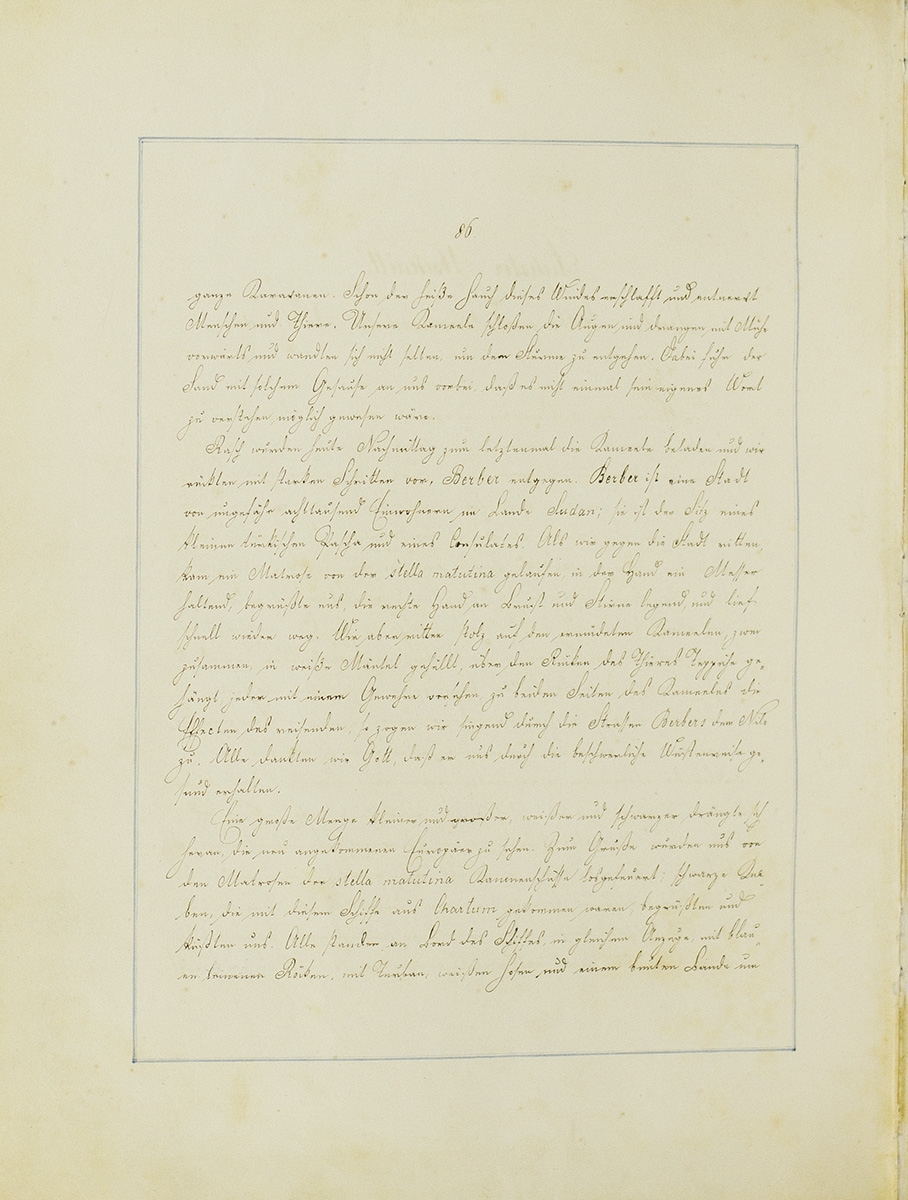 86.
ganze Karavanen. Schon der heiße Hauch dieses Windes erschlafft und entnervt
Menschen und Thiere. Unsere Kameele schloßen die Augen und drangen mit Mühe
vorwärts und wandten sich nicht selten, um dem Sturme zu entgehen. Dabei fuhr der
Sand mit solchem Gesause an uns vorbei, daß es nicht einmal sein eigenes Wort
zu verstehen möglich gewesen wäre.
Rasch wurden heute Nachmittag zum letztenmal die Kameele beladen und wir
rückten mit starken Schritten vor, Berber entgegen. Berber ist eine Stadt
von ungefähr achttausend Einwohnern im Lande Sudan; sie ist der Sitz eines
kleinen türkischen Pascha und eines Consulates. Als wir gegen die Stadt ritten,
kam ein Matrose von der stella matutina gelaufen, in der Hand ein Messer
haltend, begrüßte uns, die rechte Hand an Brust und Stirne legend und lief
schnell wieder weg. Wir aber ritten stolz auf den ermüdeten Kameelen, zwei
zusammen, in weiße Mäntel gehüllt, über den Rücken des Thieres Teppiche ge-
hängt jeder mit einem Gewehre versehen, zu beiden Seiten des Kameeles die
Effecten des reisenden, so zogen wir singend durch die Strassen Berbers dem Nile
zu. Alle dankten wir Gott, daß er uns durch die beschwerliche Wüstenreise ge-
sund erhalten.
Eine große Menge kleiner und großer, weißer und schwarzer drängte sich
heran, die neu angekommenen Europäer zu sehen. Zum Gruße wurden uns von
den Matrosen der stella matutina Kanonenschüsse losgefeuert; schwarze Kna-
ben, die mit diesem Schiffe aus Chartum gekommen waren, begrüßten und
küßten uns. Alle standen an Bord des Schiffes, in gleichem Anzuge, mit blau-
en leinenen Röcken, mit Turban, weißen Hosen und einem bunten Bande um